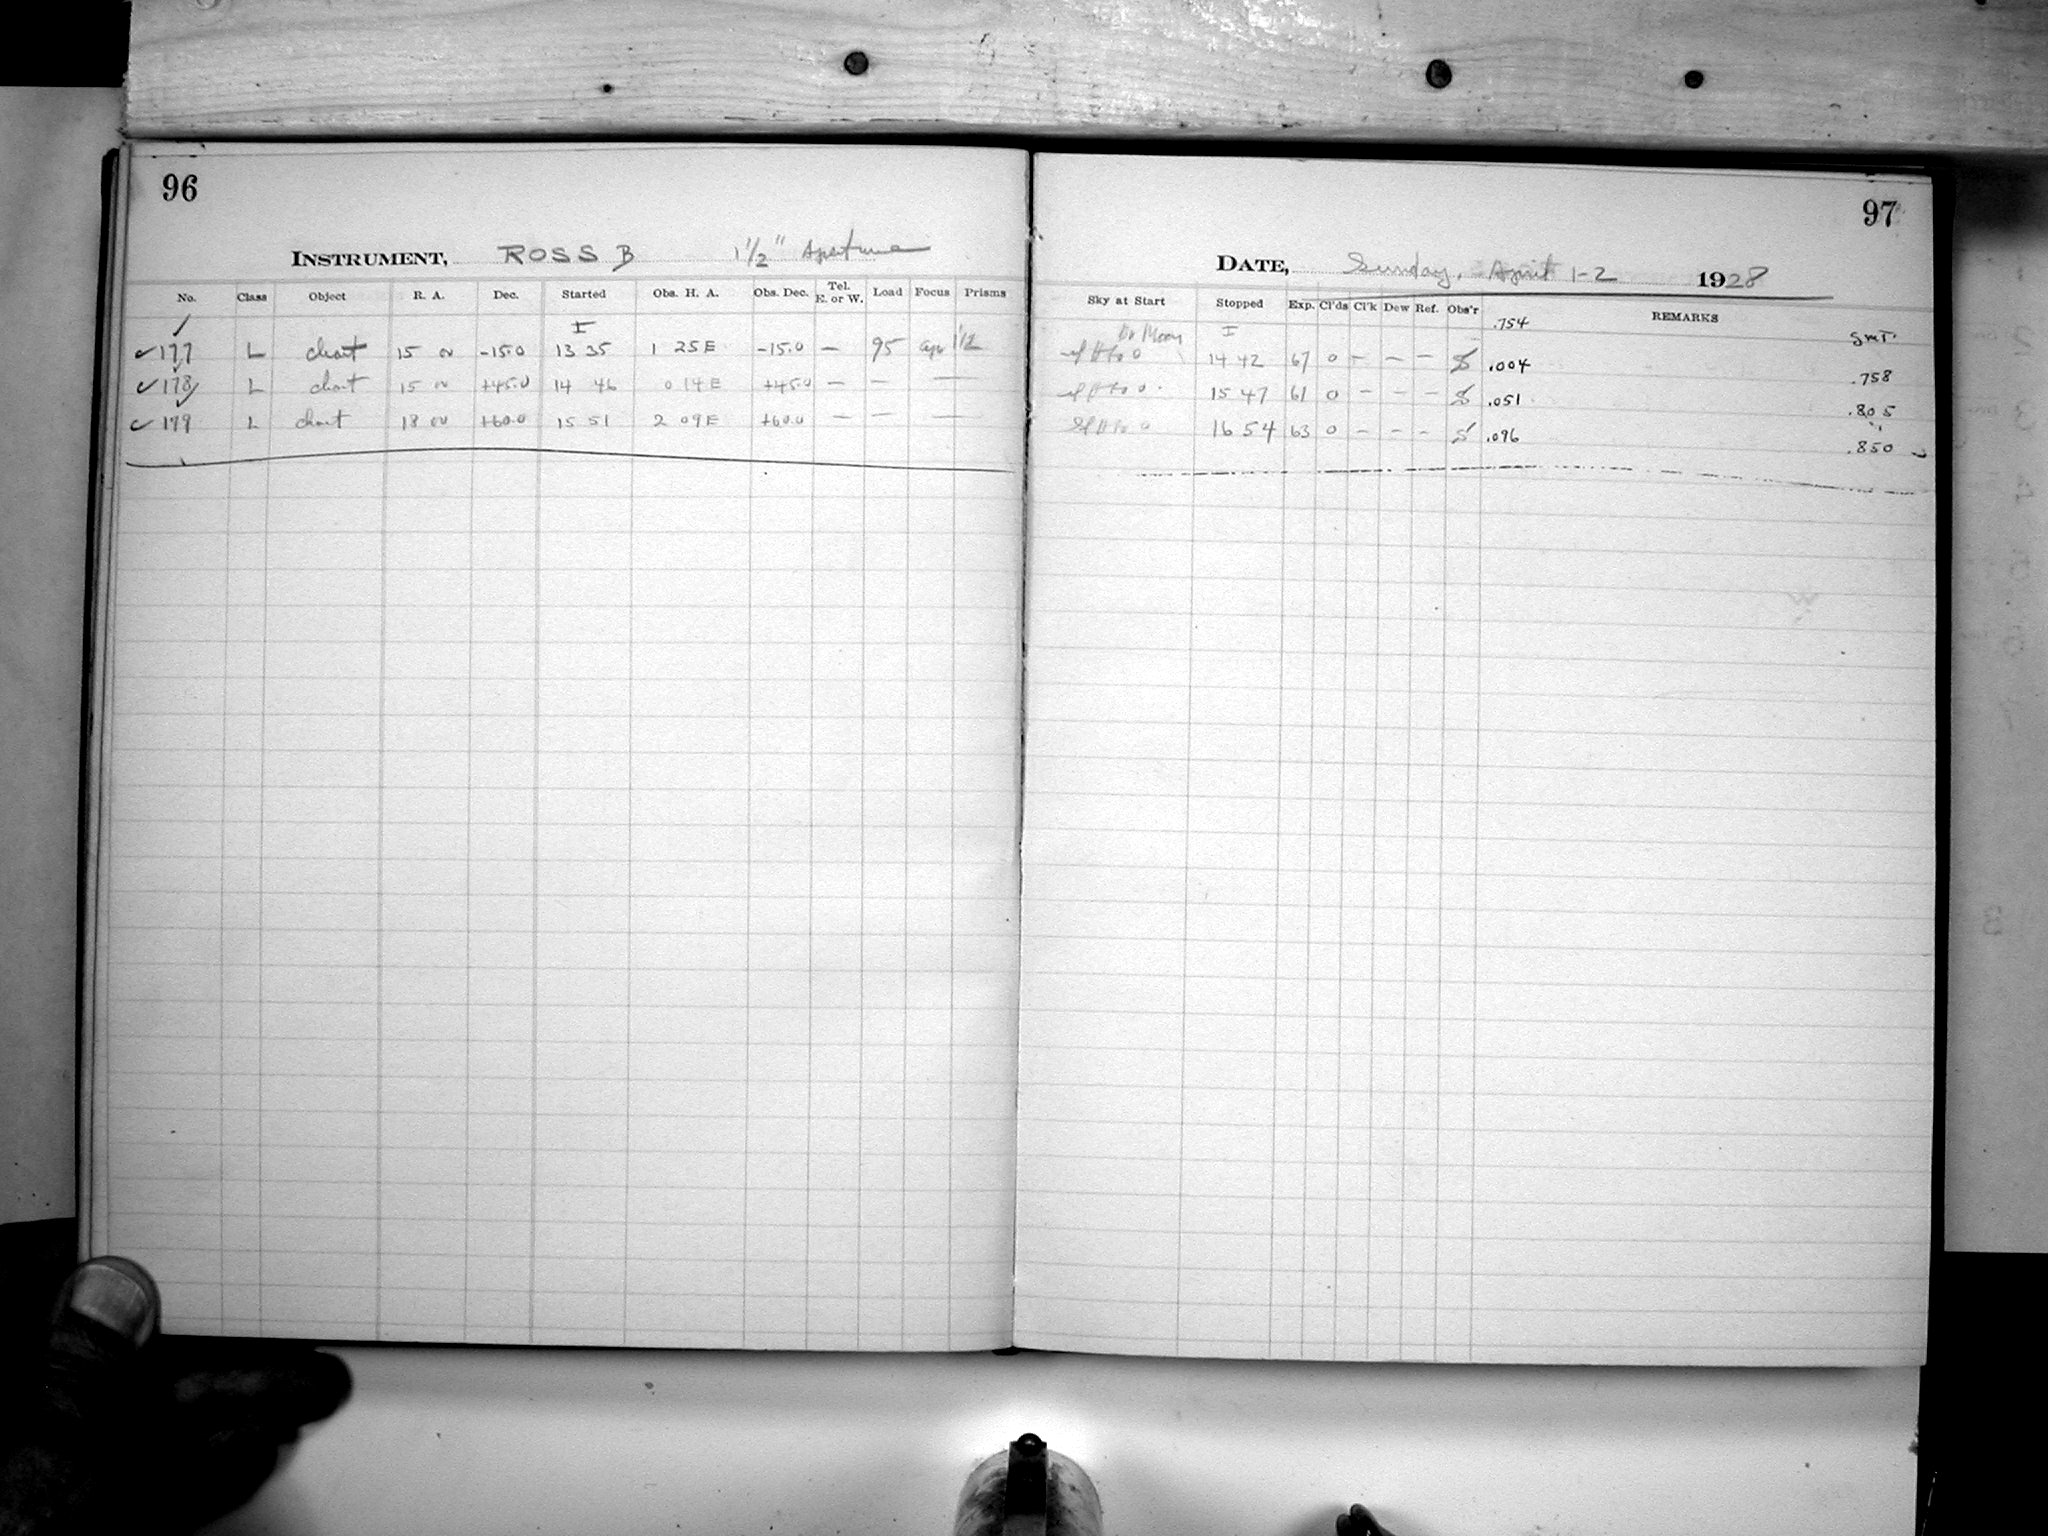 96
INSTRUMENT, ROSS B 1 1/2" Aperture
No. Class Object R. A. Dec. Started Obs. H. A. Obs. Dec. Tel. E. or W. Load Focus Prisms
I
177 L chart 15 00 -15.0 13 35 1 25 E -15.0 — 95 1 1/2
178 L chart 15 00 +45.0 14 46 0 14 E +45.0 — — —
179 L chart 18 00 +60.0 15 51 2 09 E +60.0 — — —
97
DATE, Sunday, April 1-2 1928
Sky at Start Stopped Exp. Cl'ds Cl'k Dew Ref. Obs'r REMARKS
Moon I .754 GMT.
14 42 67 0 — — — S .004 .758
15 47 61 0 — — — S .051 .805
16 54 63 0 — — — S .096 .850